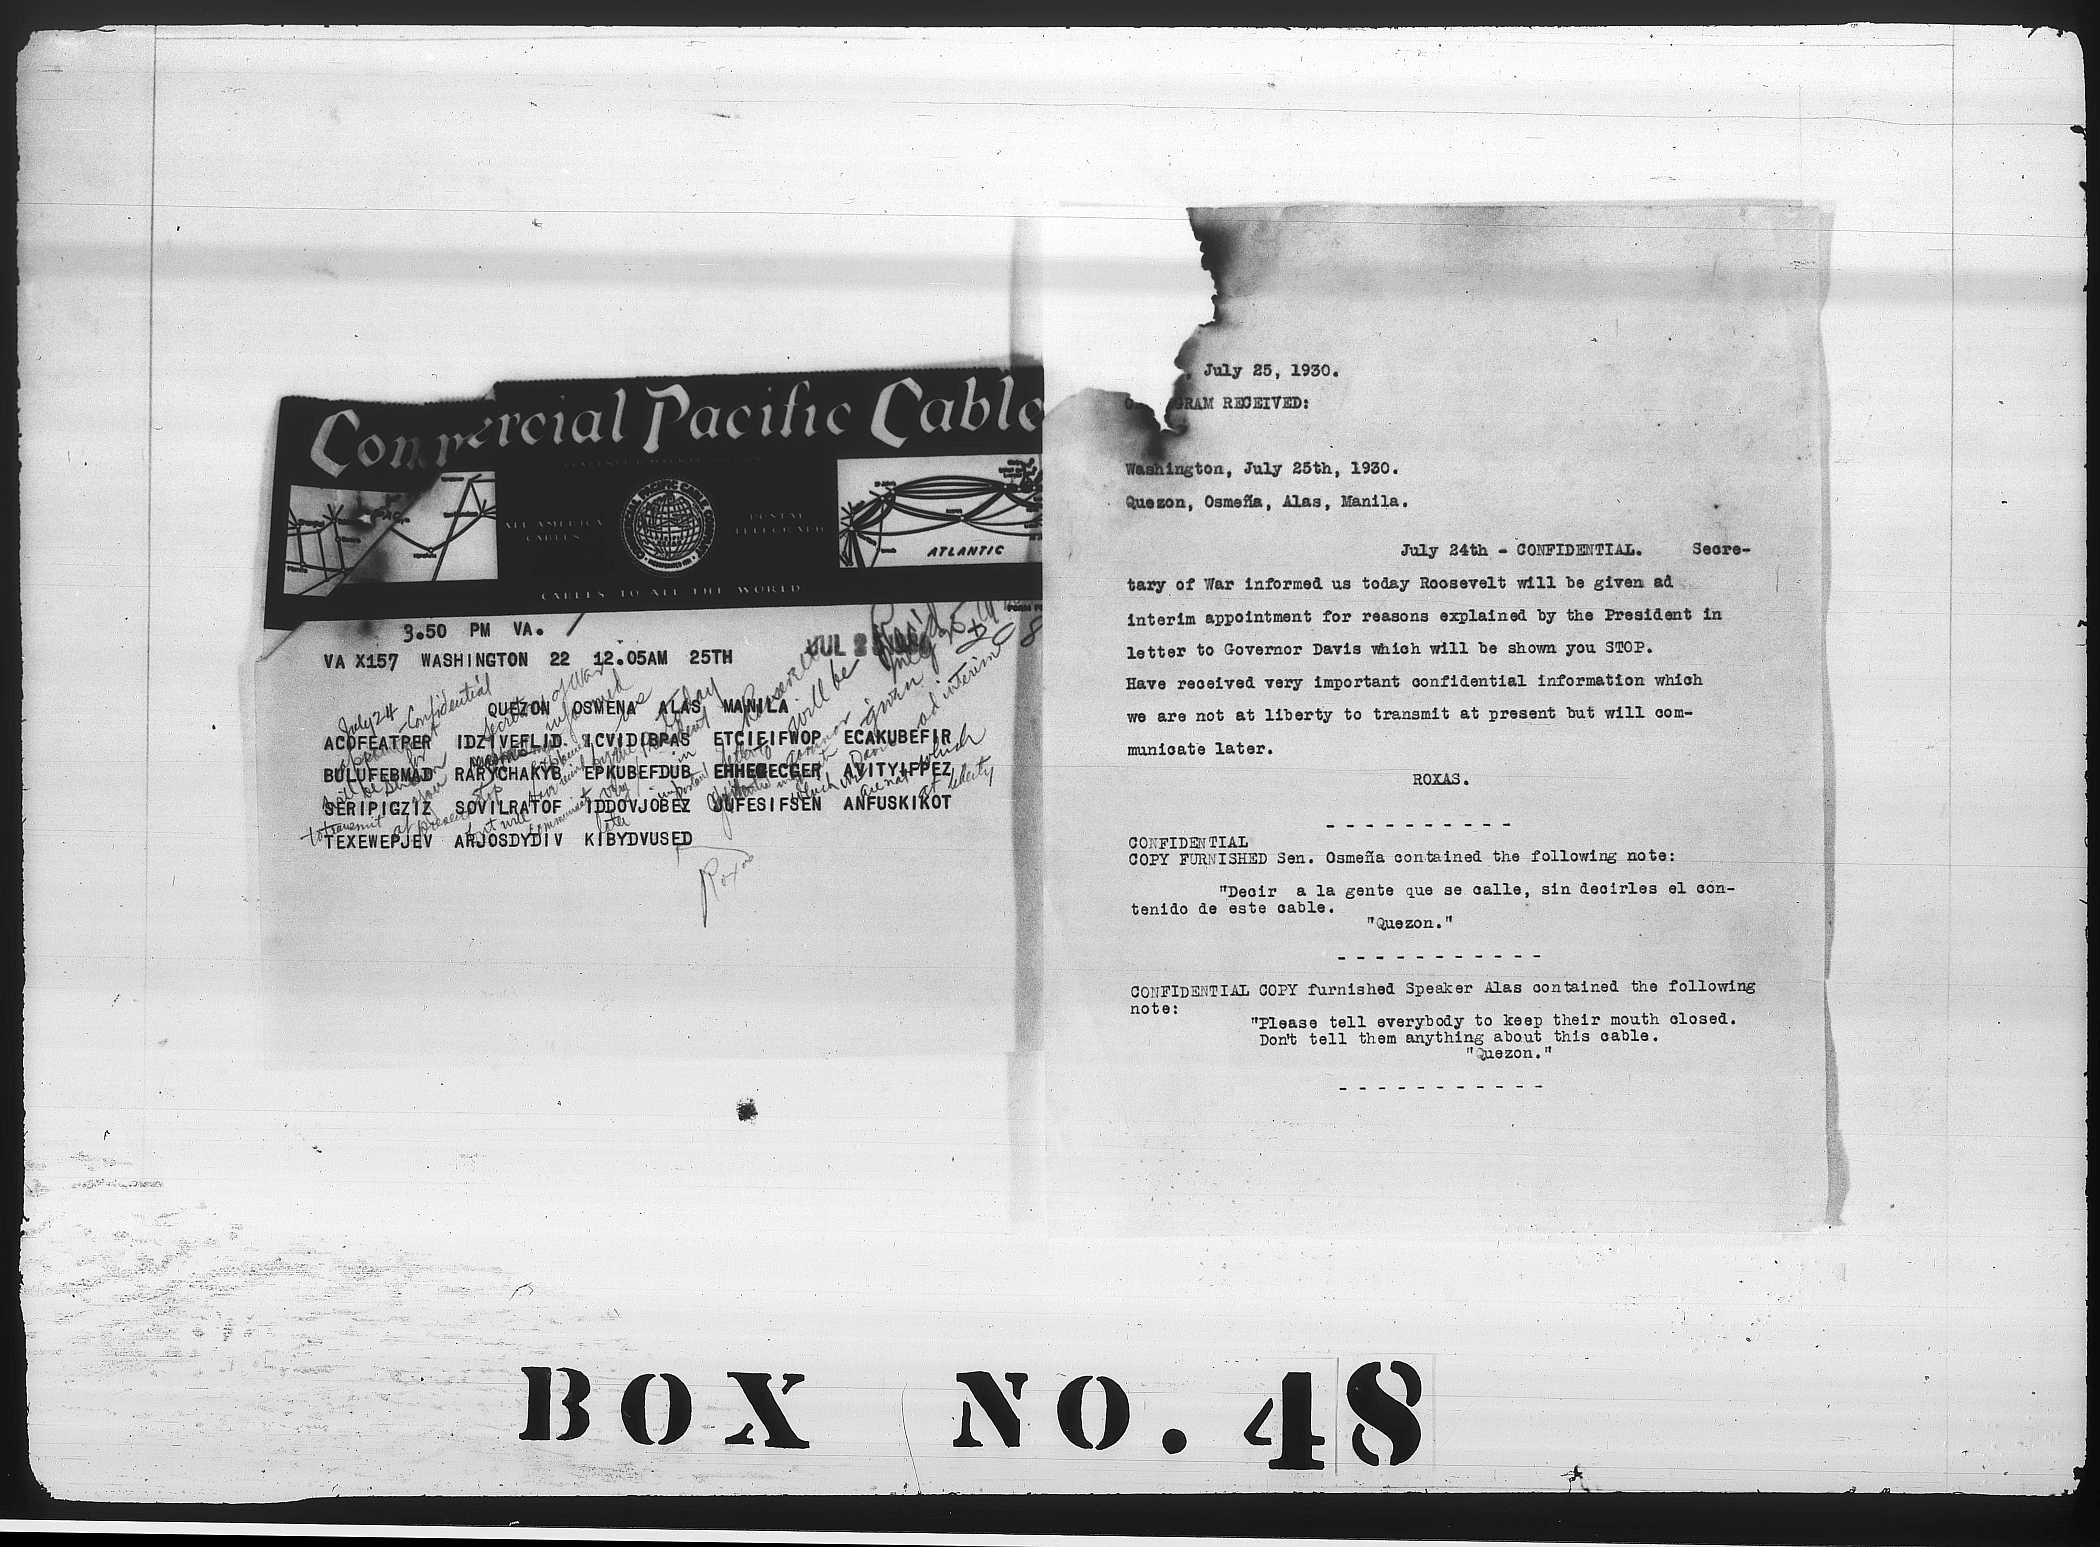 Commercial Pacific Cable
ALL AMERICA CABLES
POSTAL TELEGRAPH
ATLANTIC
CABLES TO ALL THE WORLD
3.50 PM VA.
JUL 25
VA X157 WASHINGTON 22 12.05AM 25TH
QUEZON OSMENA ALAS MANILA
ACOFEATPER IDZIVEFLID ICVIDIBPAS ETCIEIFWOP ECAKUBEFIR
BULUFEBMAD RARYCHAKYB EPKUBEFDUB EHHEGECGER AVITYIFPEZ
SERIPIGZIZ SOVILRATOF IDDOVJOBEZ JUFESIFSEN ANFUSKIKOT
TEXEWEPJEV ARJOSDYDIV KIBYDVUSED
July 24 - Confidential
Secretary of War
informed us today Roosevelt will be given ad interim
will be shown you stop
which we are not at liberty
to transmit at present but will communicate later
Roxas
, July 25, 1930.
GRAM RECEIVED:
Washington, July 25th, 1930.
Quezon, Osmeña, Alas, Manila.
July 24th - CONFIDENTIAL. Secre-
tary of War informed us today Roosevelt will be given ad
interim appointment for reasons explained by the President in
letter to Governor Davis which will be shown you STOP.
Have received very important confidential information which
we are not at liberty to transmit at present but will com-
municate later.
ROXAS.
- - - - - - - - - -
CONFIDENTIAL
COPY FURNISHED Sen. Osmeña contained the following note:
"Decir a la gente que se calle, sin decirles el con-
tenido de este cable.
"Quezon."
- - - - - - - - - - -
CONFIDENTIAL COPY furnished Speaker Alas contained the following
note:
"Please tell everybody to keep their mouth closed.
Don't tell them anything about this cable.
"Quezon."
- - - - - - - - - - -
BOX NO. 48